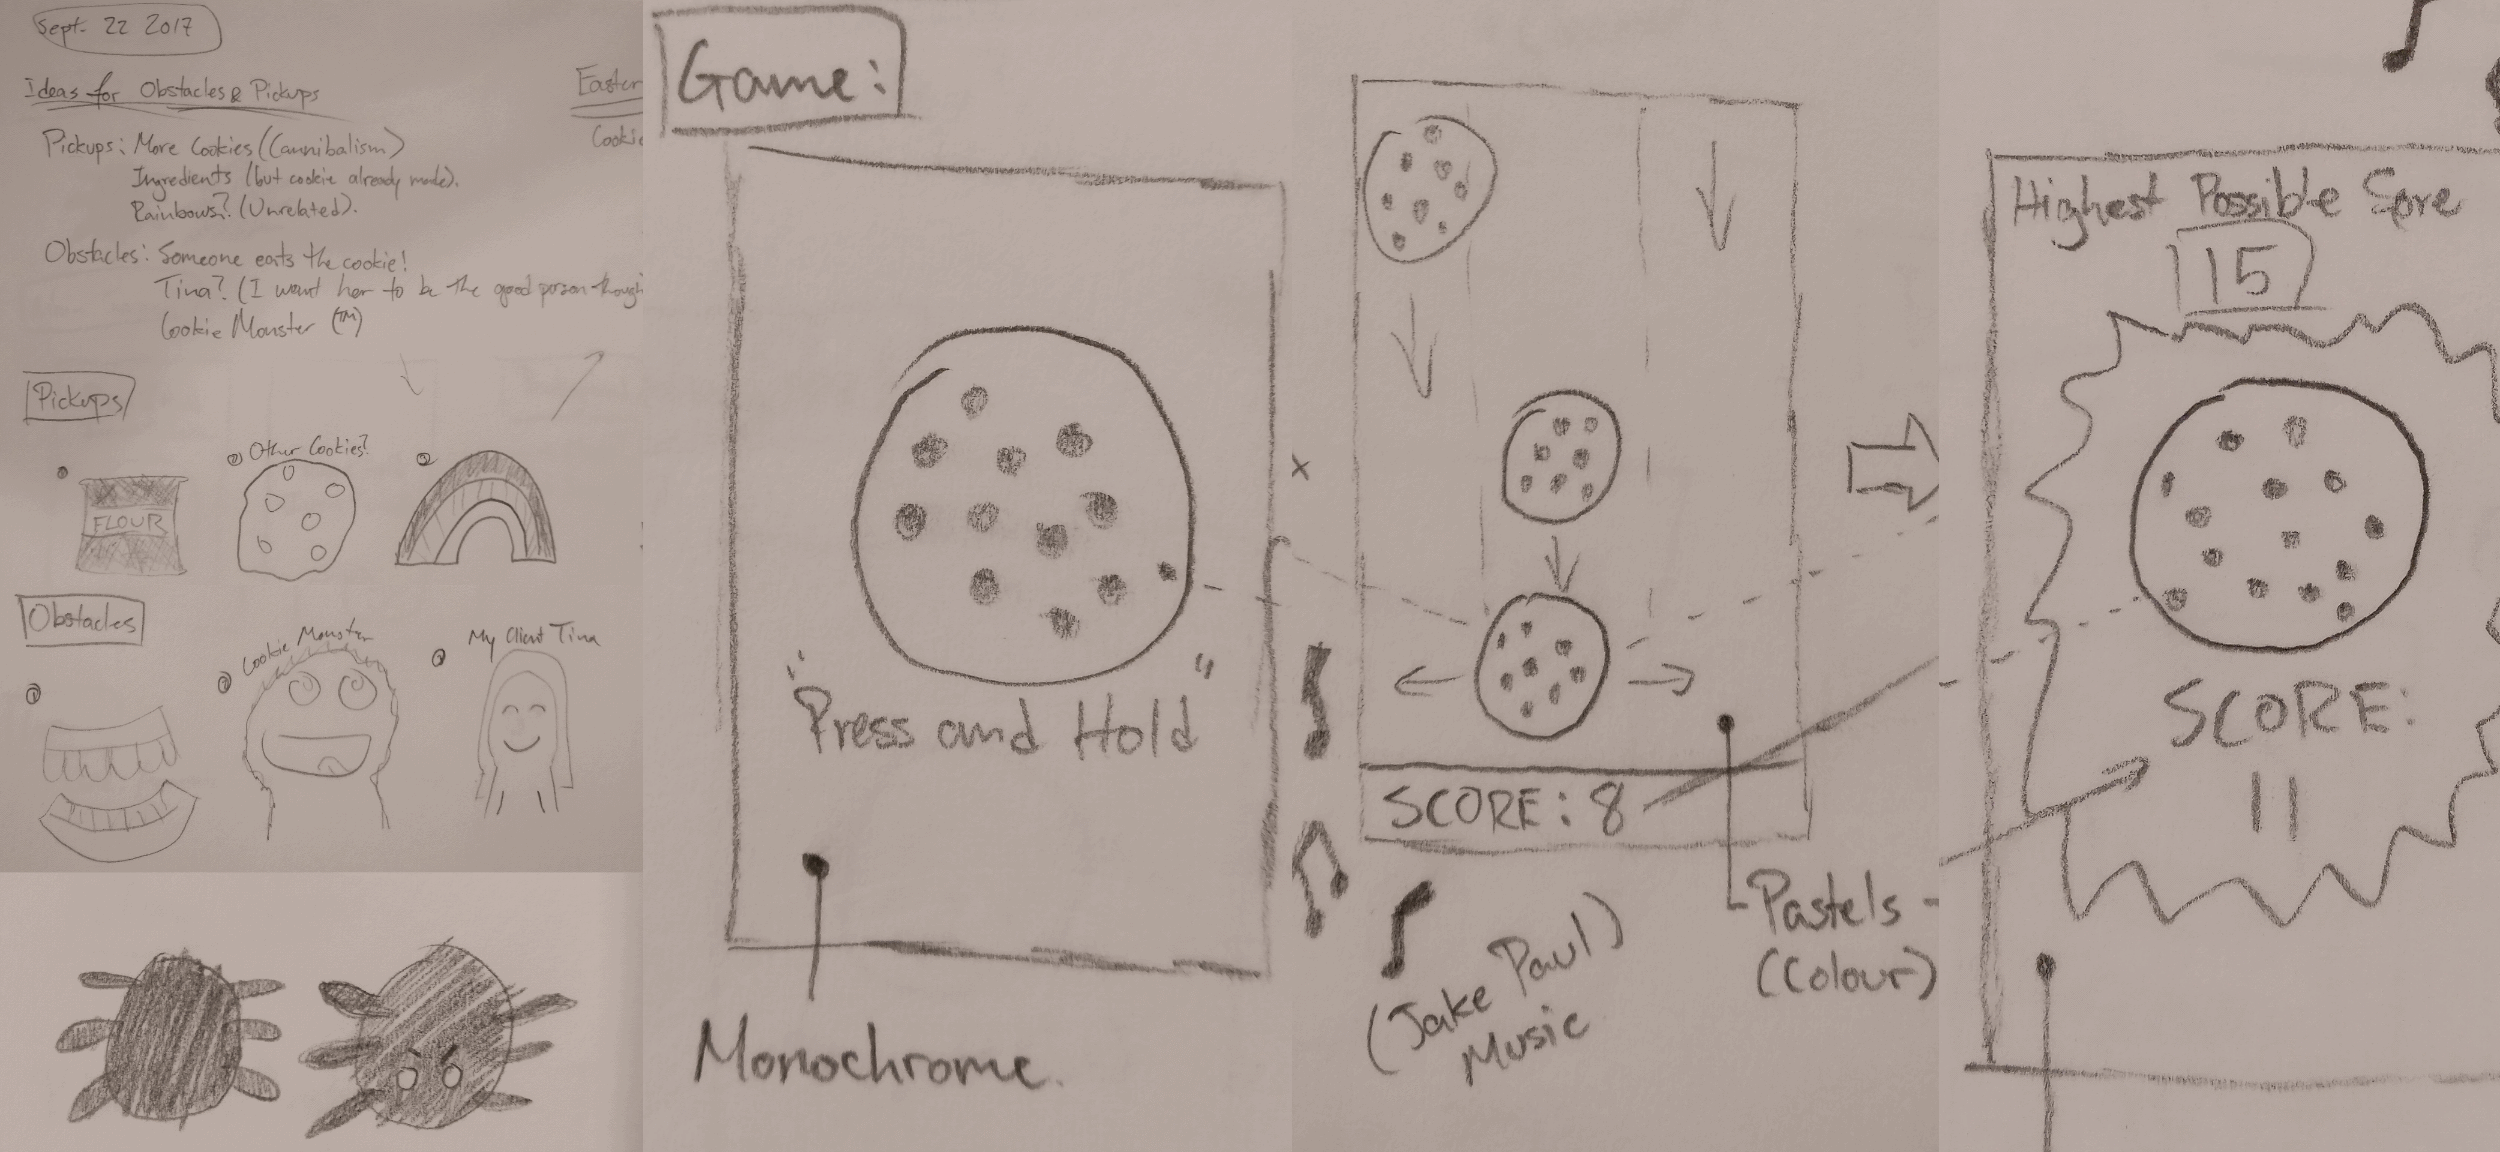 Sept. 22 2017
Ideas for Obstacles & Pickups
Pickups: More Cookies (Cannibalism)
Ingredients (but cookie already made).
Rainbows? (Unrelated).
Obstacles: Someone eats the cookie!
Tina? (I want her to be the good person though
Cookie Monster (TM)
Easter
Cookie
Pickups
Other Cookies?
FLOUR
Obstacles
Cookie Monster
My Client Tina
Game:
"Press and Hold"
Monochrome.
SCORE: 8
(Jake Paul)
Music
Pastels -
(Colour)
Highest Possible Score
15
SCORE:
11